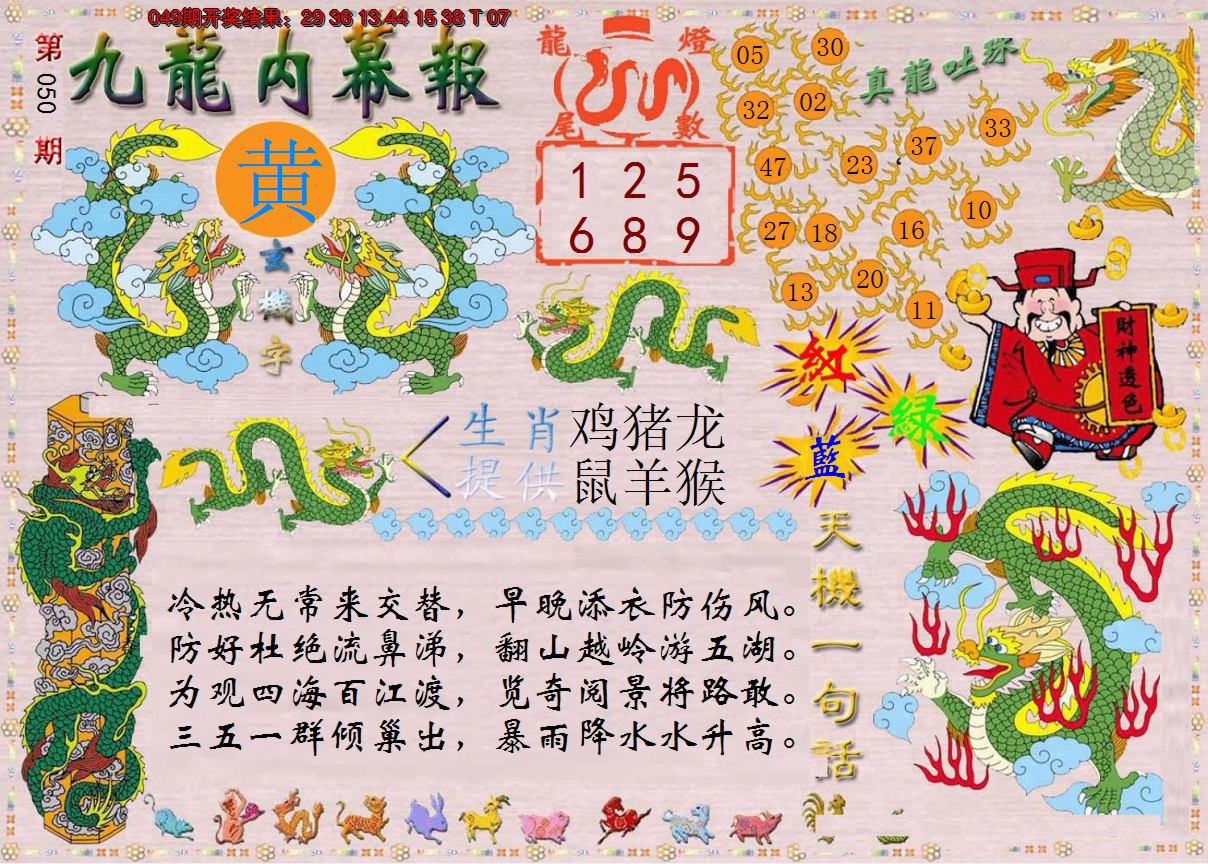 049期开奖结果：29 36 13 44 15 38 T 07
第
050
期
九龍内幕報
黄
玄
機
字
龍 燈
尾 數
1 2 5
6 8 9
真龍吐珠
05
30
32
02
47
23
37
33
27
18
16
10
13
20
11
財神透色
紅
緑
藍
生肖 鸡猪龙
提供 鼠羊猴
天機一句话
冷热无常来交替，早晚添衣防伤风。
防好杜绝流鼻涕，翻山越岭游五湖。
为观四海百江渡，览奇阅景将路敢。
三五一群倾巢出，暴雨降水水升高。